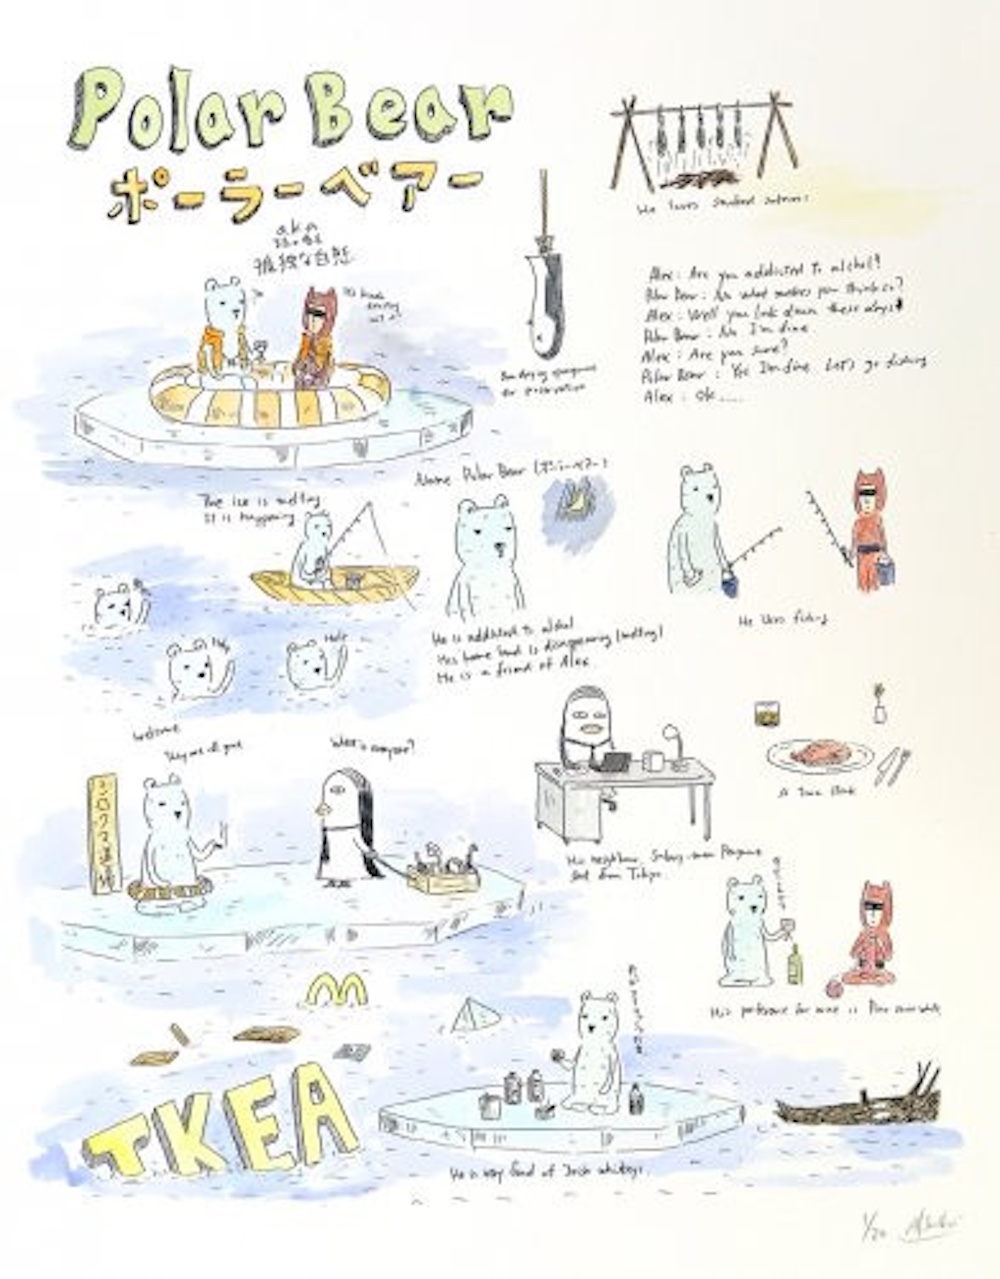 Polar Bear
ポーラーベアー
aka
孤独な白熊
He loves smoked salmon
Alex : Are you addicted to alchol?
Polar Bear : No what makes you think so?
Alex : Well you look down these days
Polar Bear : No I'm fine
Alex : Are you sure?
Polar Bear : Yes I'm fine. Let's go fishing
Alex : Ok.....
for preservation
Name Polar Bear (ポーラーベアー)
The ice is melting
It is happening
Help
Help
He is addicted to alchol
His home land is disappearing (melting)
He is a friend of Alex
He likes fishing
Welcome
They are all gone
Where is everyone?
シロクマ
His neighbour, Salary man Penguin
from Tokyo
His preference for wine is white
TKEA
He is very fond of Irish whiskeys.
1/20